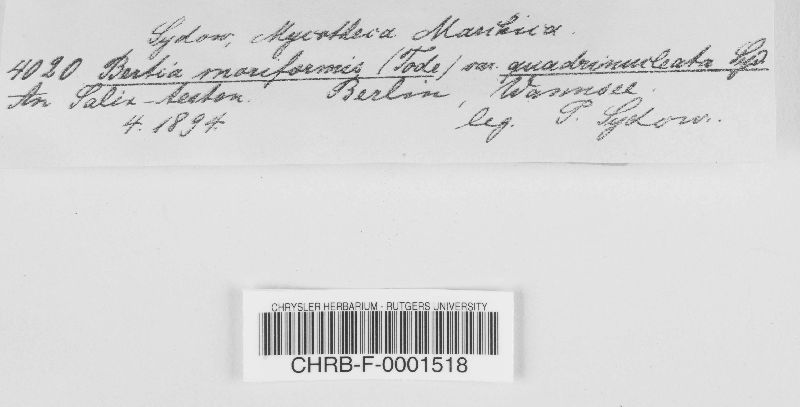 Sydow, Mycotheca Marchica.
4020 Bertia moriformis (Tode) var. quadrinucleata Syd.
An Salix-Aesten. Berlin, Wannsee.
4. 1894. leg. P. Sydow.
CHRYSLER HERBARIUM - RUTGERS UNIVERSITY
CHRB-F-0001518